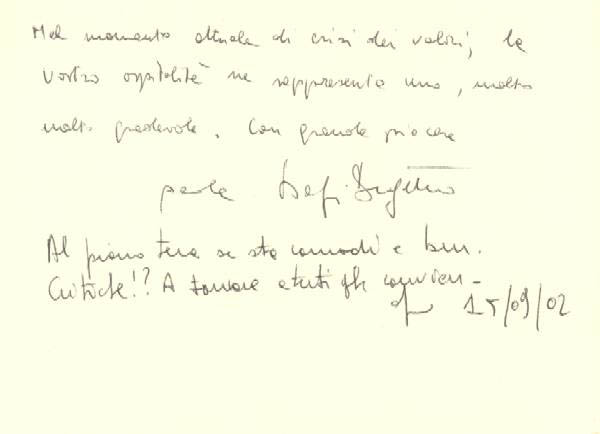 Nel momento attuale di crisi dei valori, la
vostra ospitalità ne rappresenta uno, molto
molto gradevole. Con grande piacere
Al piano terra se sta comodi e ben.
Critiche!? A tornare a tuti gli convien
15/09/02